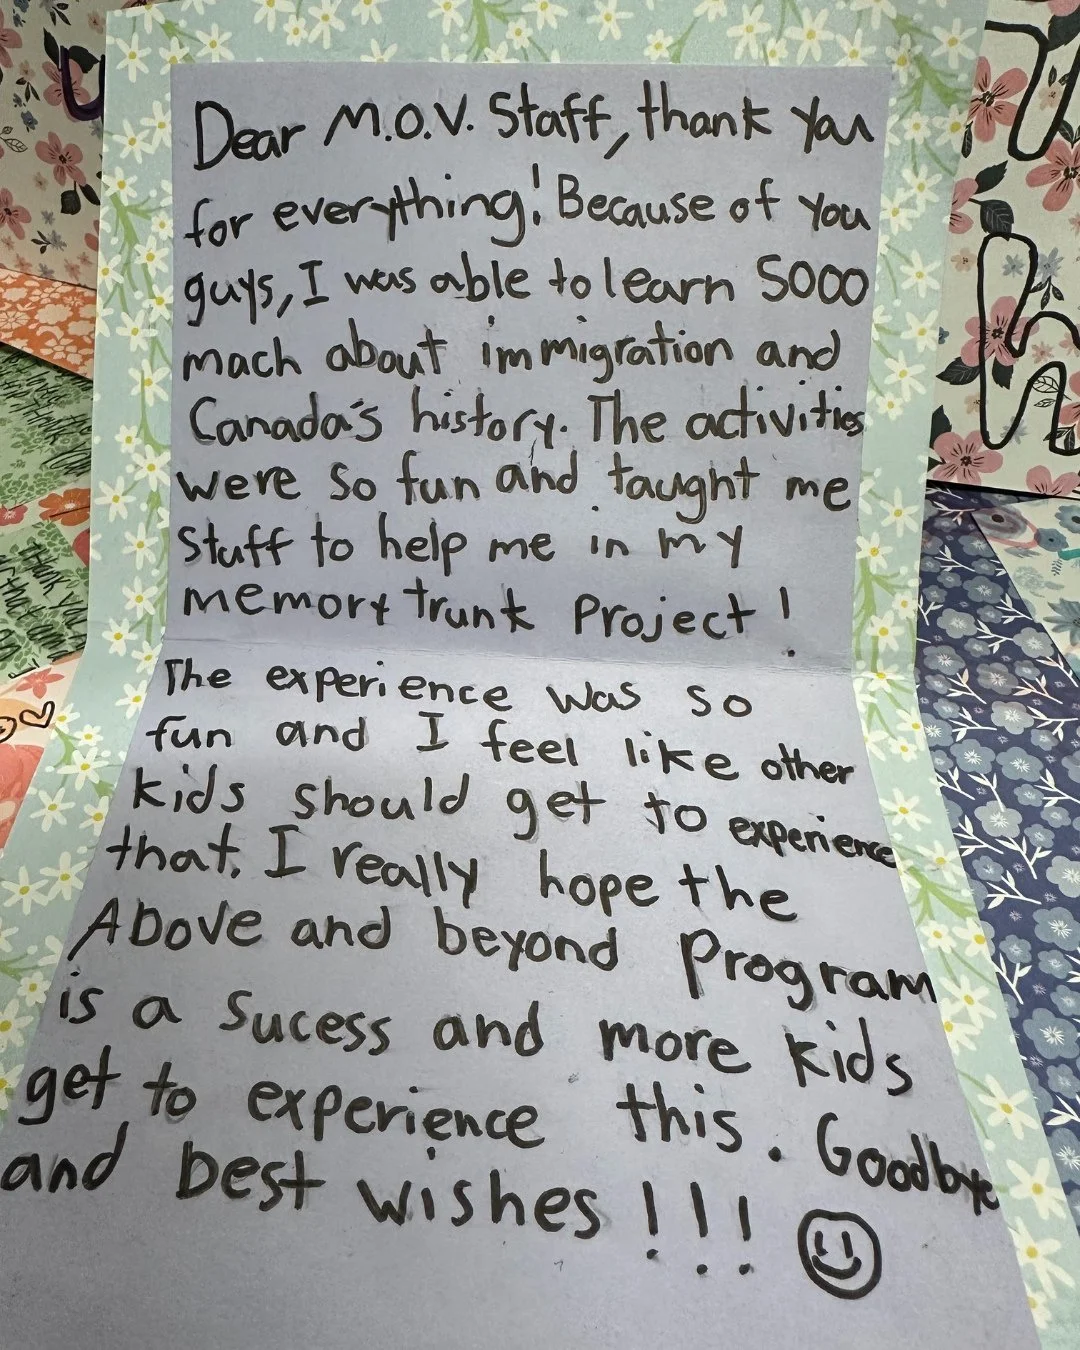 Dear M.O.V. Staff, thank You
for everything! Because of you
guys, I was able to learn SOOO
mach about immigration and
Canada's history. The activities
were so fun and taught me
stuff to help me in my
memory trunk Project!
The experience was so
fun and I feel like other
kids should get to experience
that. I really hope the
Above and beyond Program
is a sucess and more kids
get to experience this. Goodbye
and best wishes!!!